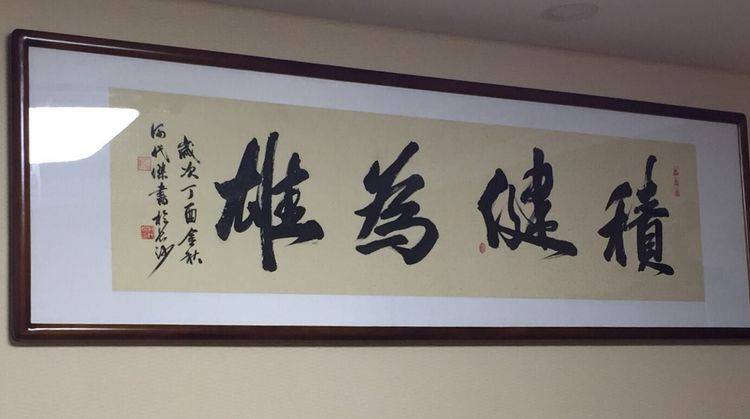 積健為雄
歲次丁酉金秋
代傑書於長沙